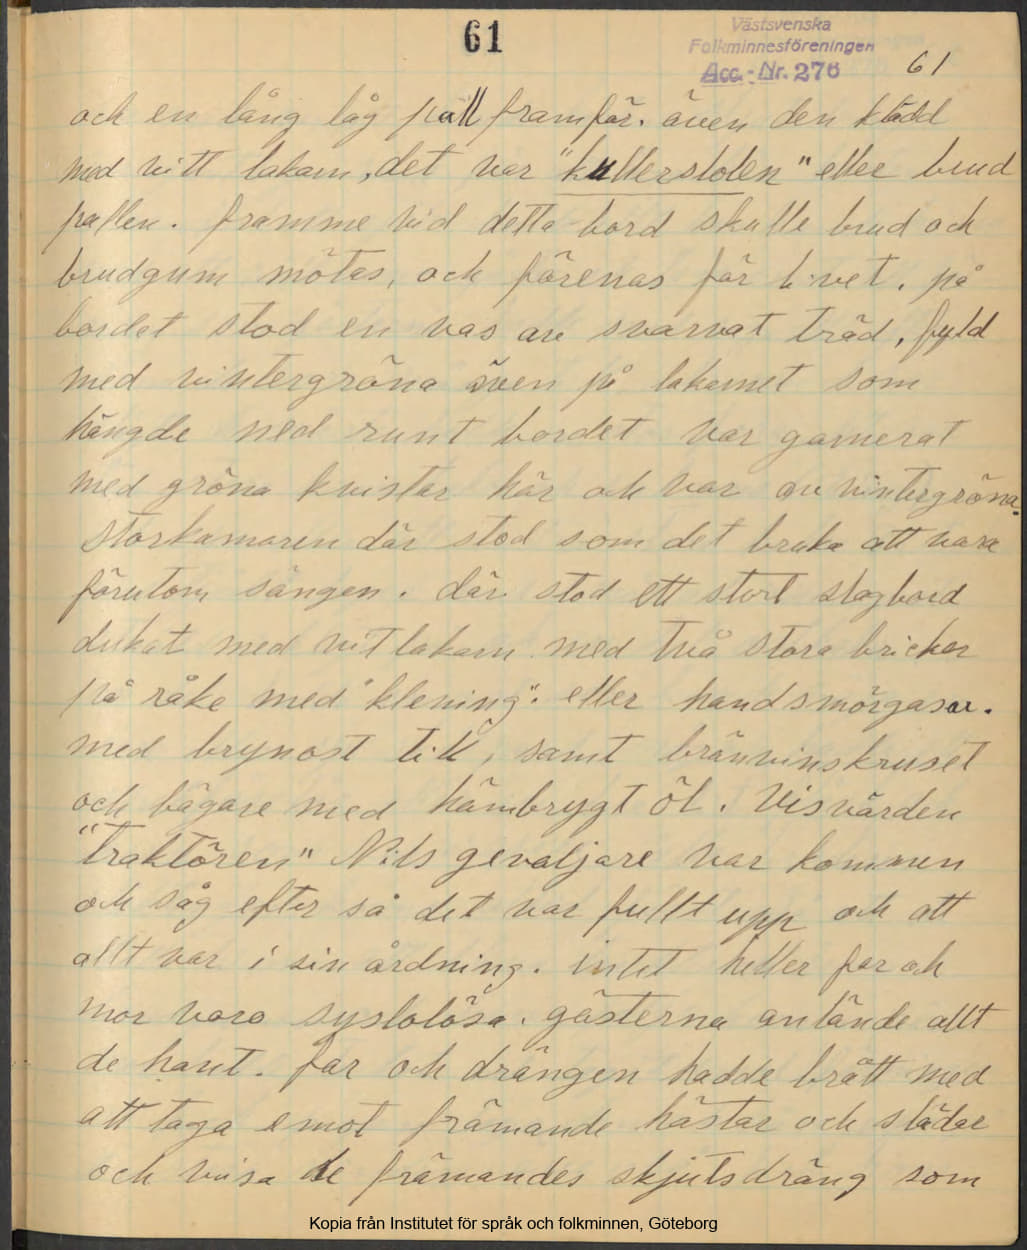 61
Västsvenska
Folkminnesföreningen
Acc.-Nr. 276
61
och en lång låg pall framför. även den klädd
med vitt lakam, det var "kullerstolen" eller brud
pallen. framme vid detta bord skulle brud och
brudgum mötas, och förenas för livet. på
bordet stod en vas av svarvat träd, fyld
med vintergröna även på lakamet som
hängde ned runt bordet var garnerat
med gröna kvistar här och var av vintergröna.
Storkamaren där stod som det bruka att vara
förutom sängen. där stod ett stort slagbord
dukat med vit lakam med två stora brickor
på råke med "klening". eller handsmörgasar.
med brynost till, samt bränvinskruset
och bägare med hämbrygt öl. Visvärden
"traktören" Nils gevaljare var kommen
och såg efter så det var fullt upp och att
allt var i sin årdning. intet heller far och
mor voro syslolösa. gästerna anlände allt
de hant. far och drängen hadde brått med
att taga emot främande hästar och slädar
och visa de främandes skjutsdräng som
Kopia från Institutet för språk och folkminnen, Göteborg